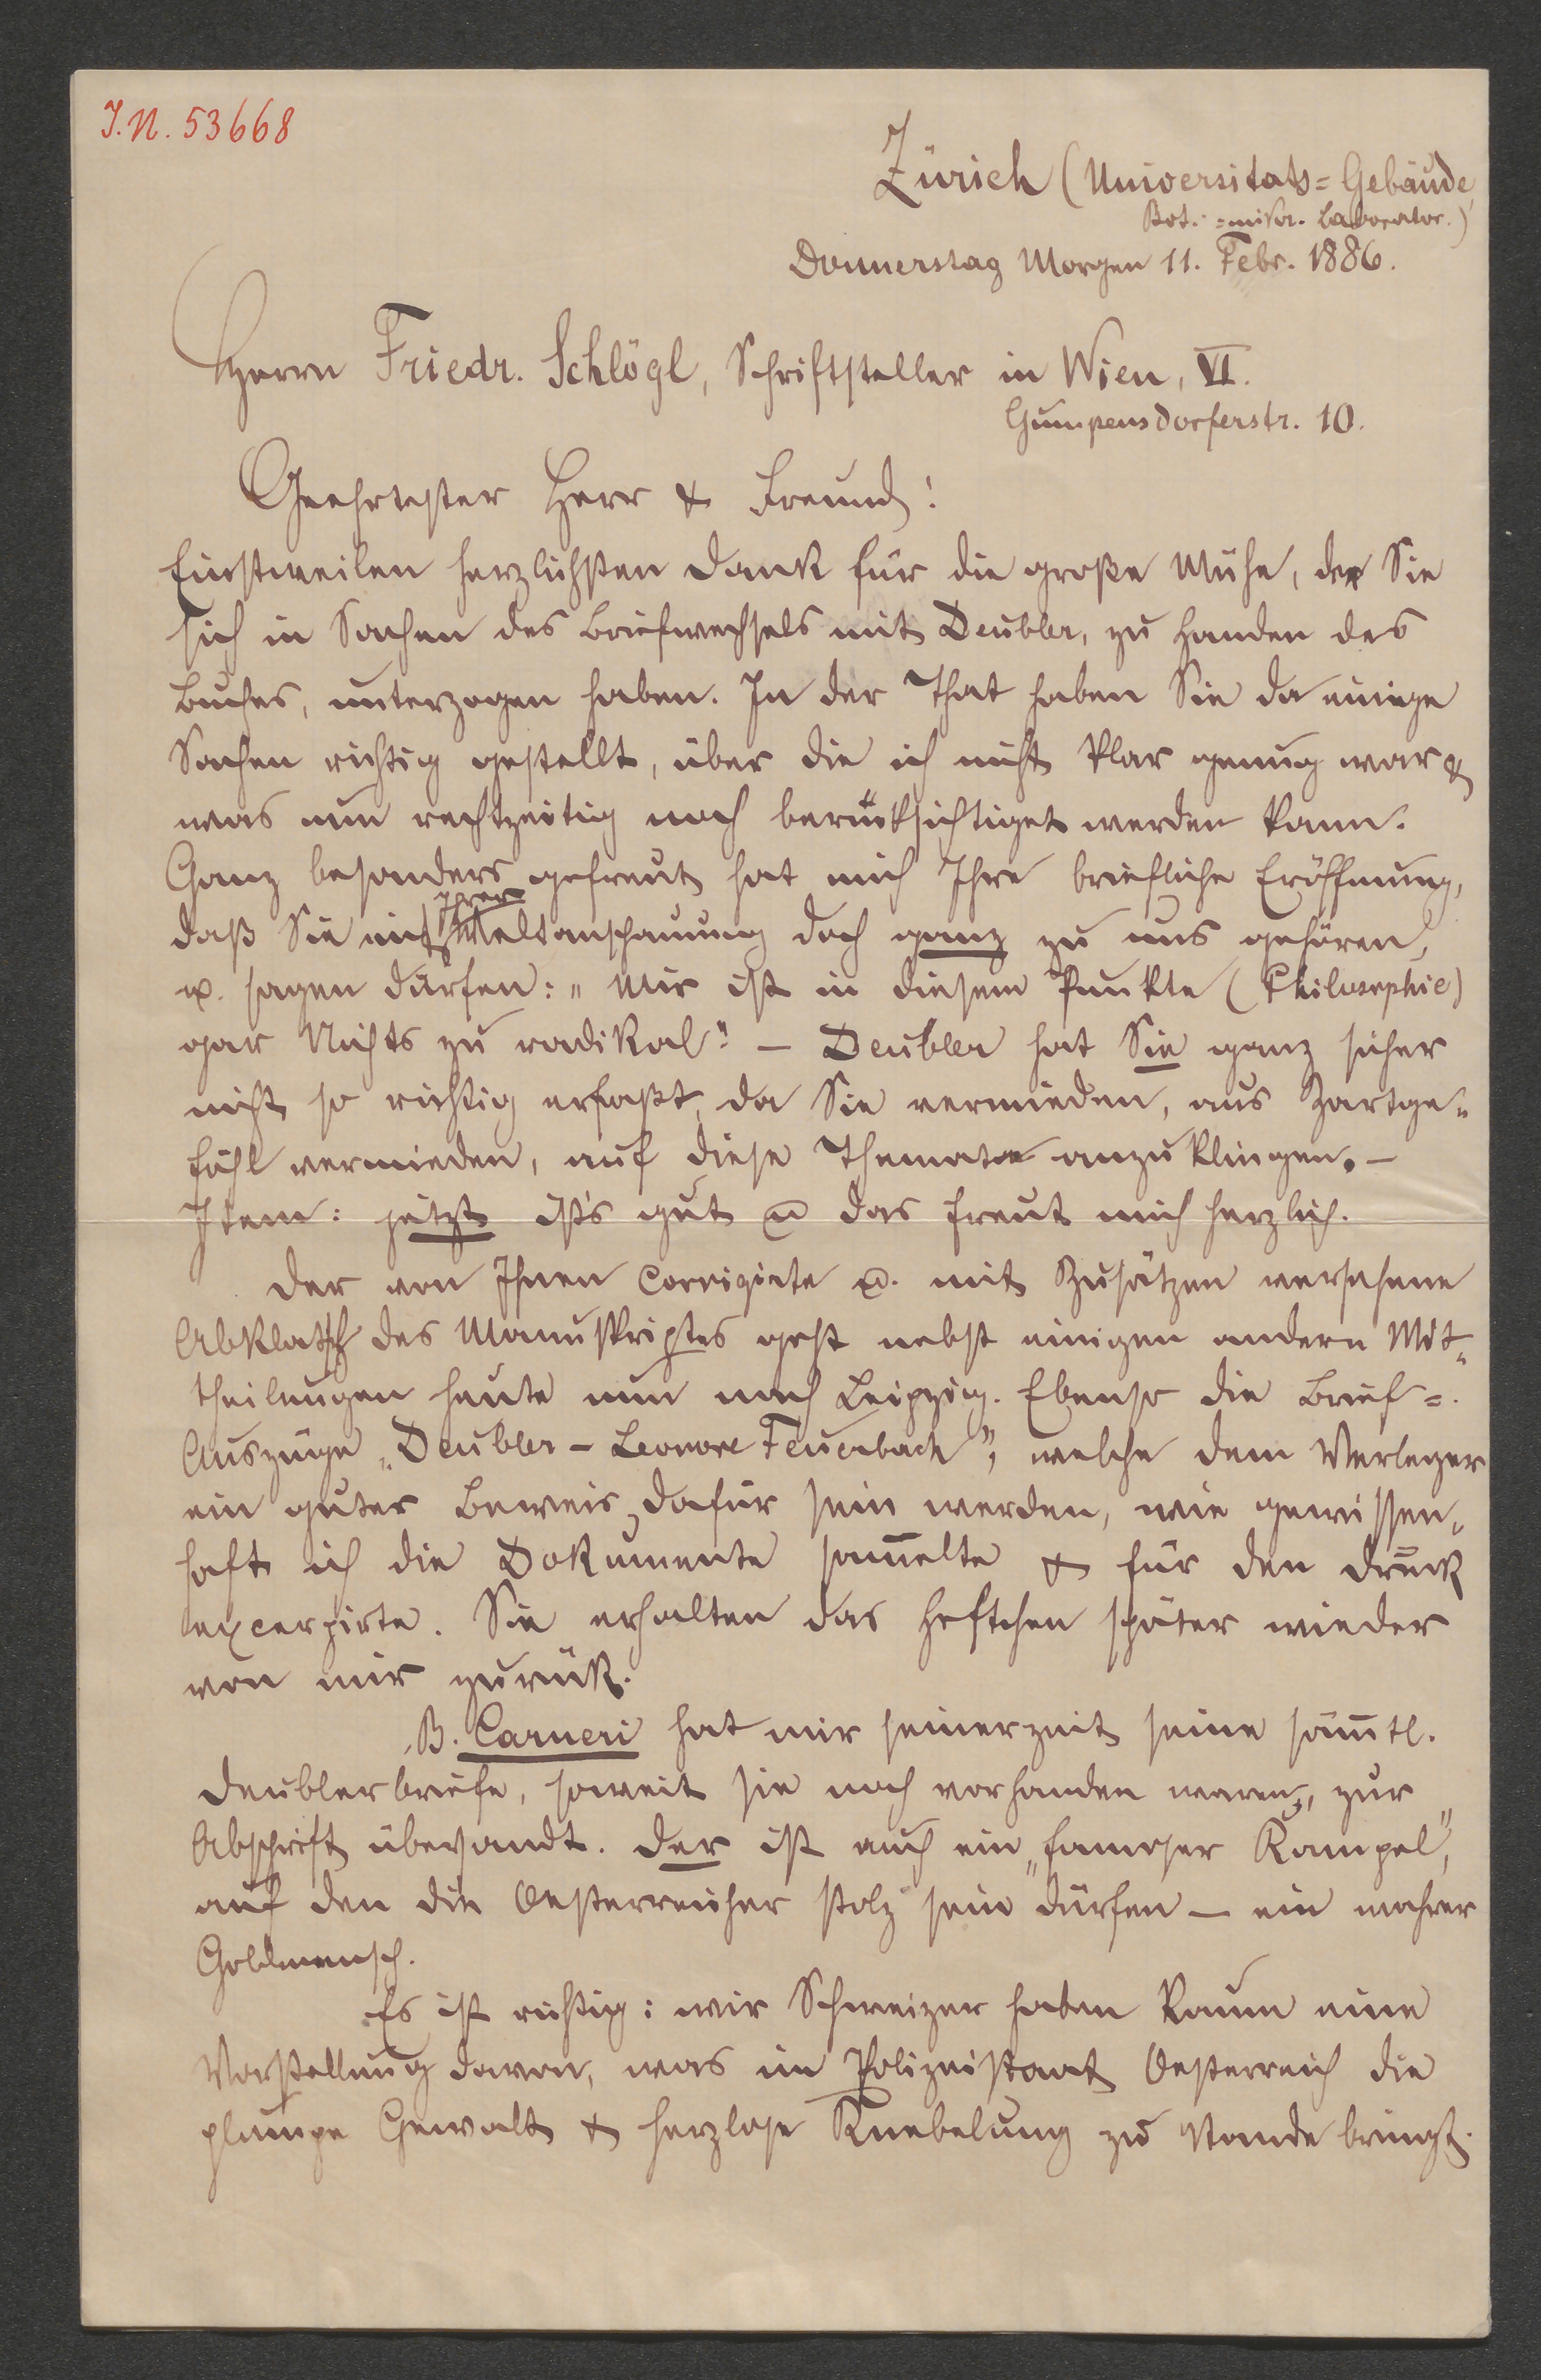 I.N. 53668
Zürich (Universitäts=Gebäude,
Bot.=mikr. Laborator.)
Donnerstag Morgen 11. Febr. 1886.
Herrn Friedr. Schlögl, Schriftsteller in Wien, VI.
Gumpendorferstr. 10.
Geehrtester Herr & Freund!
Einstweilen herzlichsten Dank für die große Mühe, der Sie
sich in Sachen des Briefwechsels mit Deubler, zu Handen des
Buches, unterzogen haben. In der That haben Sie da einige
Sachen richtig gestellt, über die ich nicht klar genug war &
was nun rechtzeitig noch berücksichtiget werden kann.
Ganz besonders gefreut hat mich Ihre briefliche Eröffnung,
daß Sie mit Ihrer Weltanschauung doch ganz zu uns gehören,
u. sagen dürfen: „Mir ist in diesem Punkte (Philosophie)
gar Nichts zu radikal“. – Deubler hat Sie ganz sicher
nicht so richtig erfaßt, da Sie vermieden, aus Zartge-
fühl vermieden, auf diese Themata anzuklingen. –
Item: jetzt ist's gut u das freut mich herzlich.
Der von Ihnen corrigirte u. mit Zusätzen versehene
Abklatsch des Manuskriptes geht nebst einigen andern Mit-
theilungen heute nun nach Leipzig. Ebenso die Brief=
Auszüge „Deubler – Leonore Feuerbach“, welche dem Verleger
ein guter Beweis dafür sein werden, wie gewissen-
haft ich die Dokumente sam̅elte & für den Druck
excerpirte. Sie erhalten das Heftchen später wieder
von mir zurück.
B. Carneri hat mir seinerzeit seine säm̅tl.
Deublerbriefe, soweit sie noch vorhanden waren, zur
Abschrift übersandt. Der ist auch ein „famoser Kampel“,
auf den die Oesterreicher stolz sein dürfen – ein wahrer
Goldmensch.
Es ist richtig: wir Schweizer haben kaum eine
Vorstellung davon, was im Polizeistaat Oesterreich die
plumpe Gewalt & herzlose Knebelung zu Stande bringt.